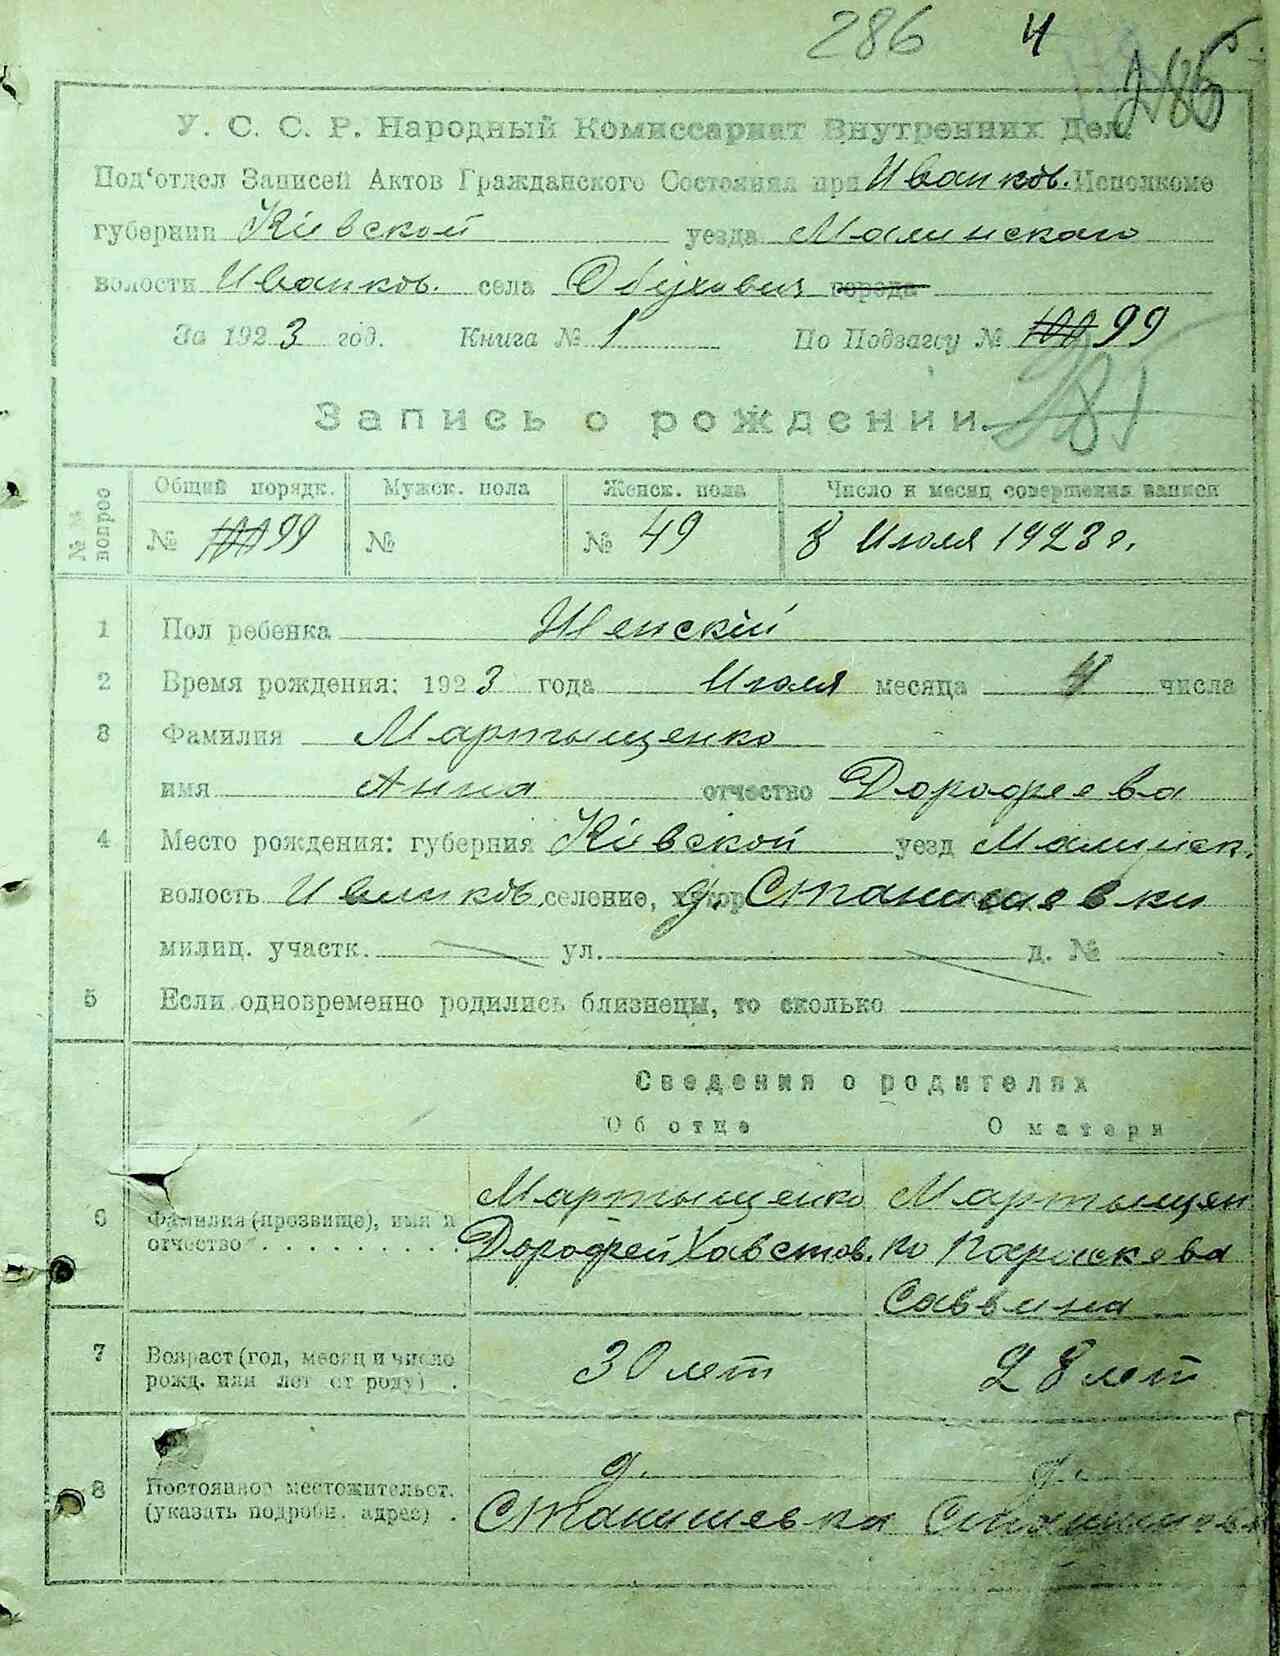 286 4 286
У. С. С. Р. Народный Комиссариат Внутренних Дел.
Под‘отдел Записей Актов Гражданского Состояния при Иванков. Исполкоме
губернии Кіевской уезда Малинскаго
волости Иванков. села Обуховичи города
За 1923 год. Книга № 1 По Подзагсу № 100 99
285
Запись о рождении.
№№ вопрос
Общий порядк. Мужск. пола Женск. пола Число и месяц совершения записи
№ 100 99 № № 49 8 Июля 1923 г.
1 Пол ребенка Женскій
2 Время рождения: 1923 года Июля месяца 4 числа
3 Фамилия Мартыщенко
имя Анна отчество Дорофеева
4 Место рождения: губерния Кіевской уезд Малинск.
волость Иванков. селение, хутор д. Станишевки
милиц. участк. ул. д. №
5 Если одновременно родились близнецы, то сколько
Сведения о родителях
Об отце О матери
6 Фамилия (прозвище), имя и отчество Мартыщенко Дорофей Хавстов. Мартыщенко Параскева Саввина
7 Возраст (год, месяц и число рожд. или лет от роду) 30 лет 28 лет
8 Постоянное местожительст. (указать подробн. адрес) д. Станишевка д. Станишевка